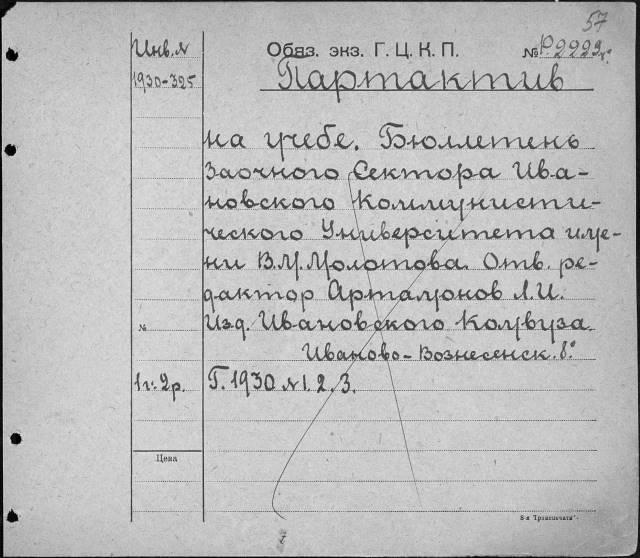 57
Инв. №
Обяз. экз. Г. Ц. К. П.
№ Р2229 г°
1930-325
Партактив
на учебе. Бюллетень
Заочного Сектора Ива-
новского Коммунисти-
ческого Университета име-
ни В.М. Молотова. Отв. ре-
дактор Артамонов Л.И.
№
Изд. Ивановского Комвуза.
Иваново-Вознесенск. 8°
1 г. 2 р.
Г. 1930 № 1. 2. 3.
Цена